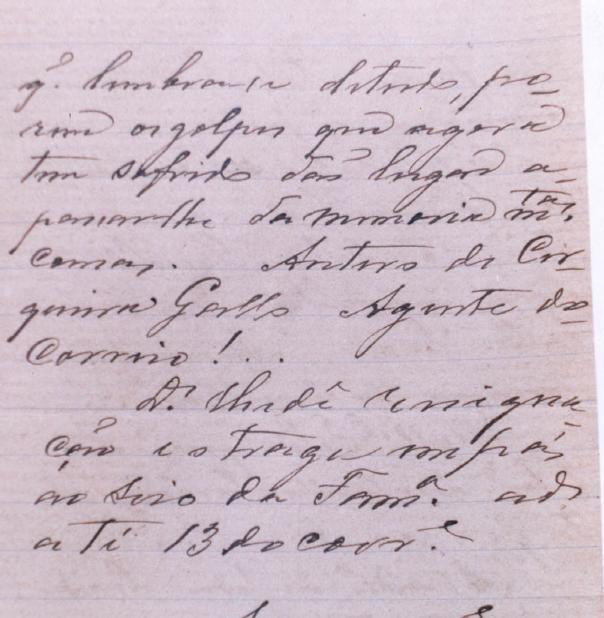 q. lembrar-se detudo, po-
rem os golpes que agora
tem sofrido dão lugar a
passar-lhe da memoria mtas.
cousas. Antero de Cir-
queira Gallo Agente do
Correio!...
D.s lhe dê resigna
ção e o traga em paz
ao seio da Fama. ad.s
até 13 do corre.